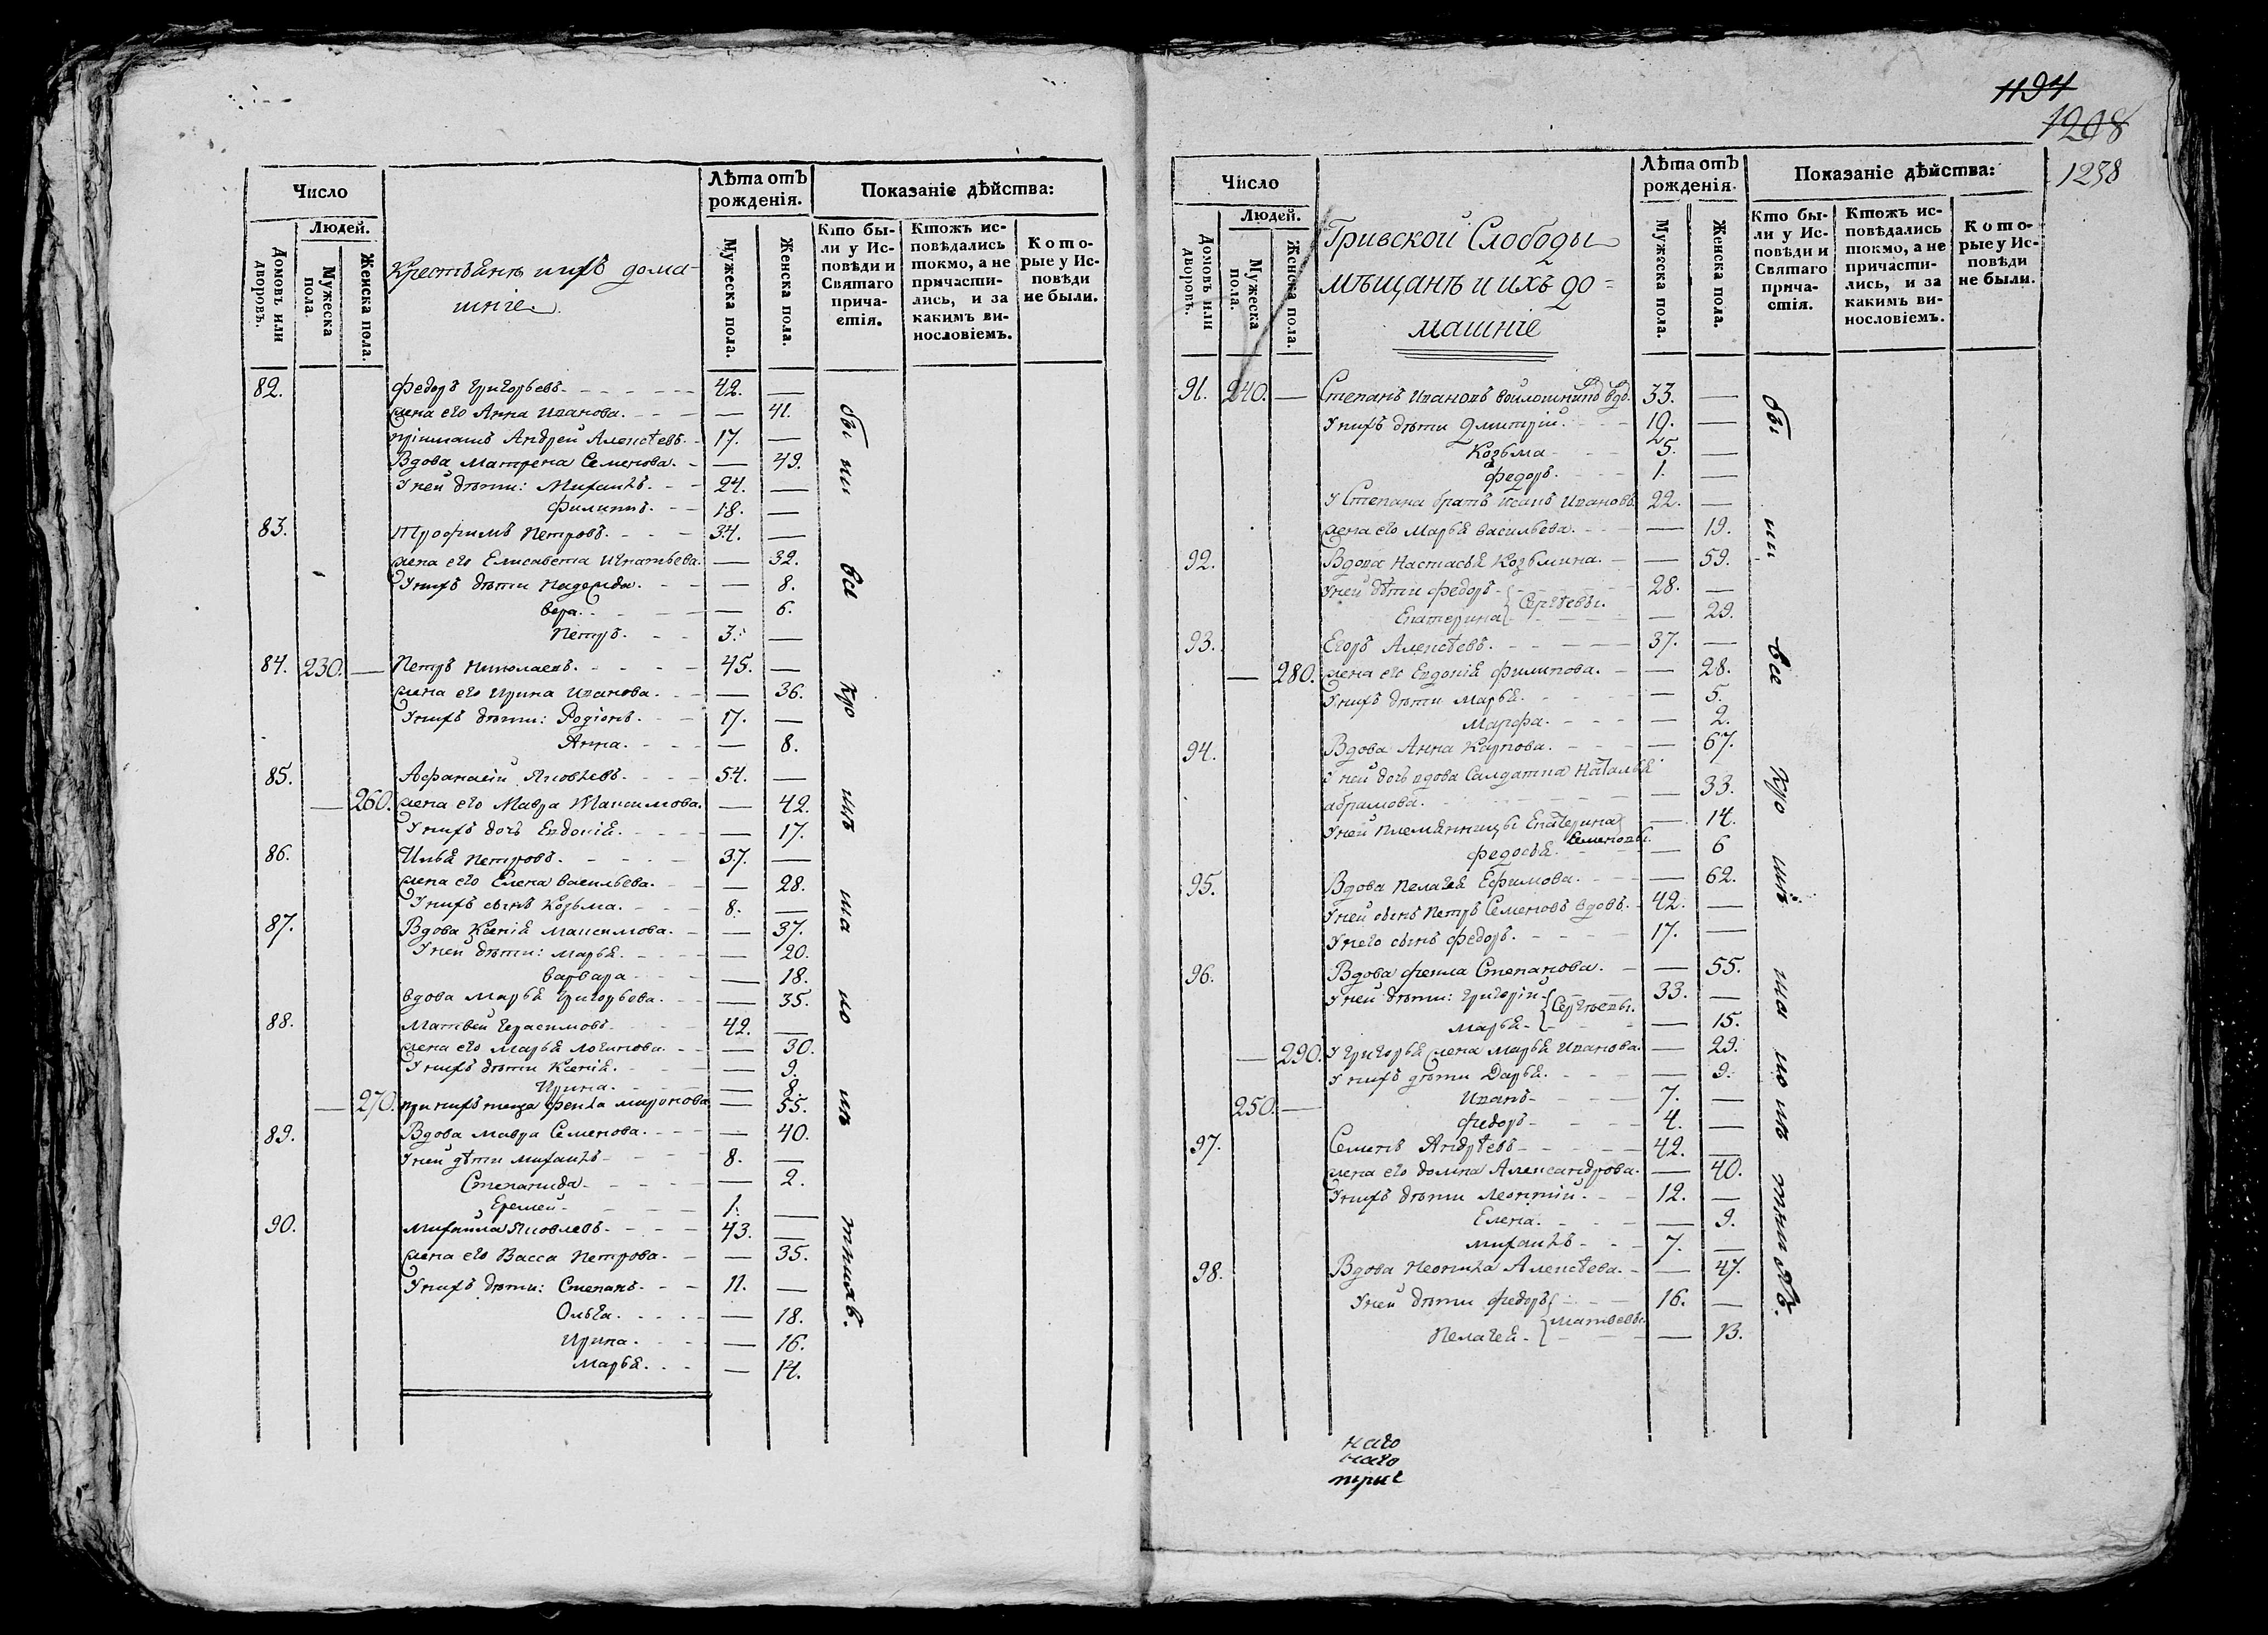 Число
Людей.
Домовъ или дворовъ.
Мужеска пола.
Женска пола.
Крестьянъ и ихъ дома-
шніе
Лѣта отъ рожденія.
Мужеска пола.
Женска пола.
Показаніе дѣйства:
Кто бы-
ли у Ис-
повѣди и
Святаго
прича-
стія.
Ктожъ ис-
повѣдались
токмо, а не
причасти-
лись, и за
какимъ ви-
нословіемъ.
Кото-
рые у Ис-
повѣди
не были.
82. Федоръ Григорьевъ. 42. —
жена его Анна Иванова. — 41.
пріимашъ Андрей Алексѣевъ. 17. —
Вдова Матрена Семенова. — 49.
У ней дѣти: Михаилъ. 24. —
Филиппъ. 18. —
83. Трофимъ Петровъ. 34. —
жена его Елисавета Игнатьева. — 32.
У нихъ дѣти Надежда. — 8.
Вера. — 6.
Петръ. 3. —
84. 230. — Петръ Николаевъ. 45. —
жена его Ирина Иванова. — 36.
У нихъ дѣти: Родіонъ. 17. —
Анна. — 8.
85. Афанасій Яковлевъ. 54. —
— 260. жена его Мавра Максимова. — 42.
У нихъ дочь Евдокія. — 17.
86. Илья Петровъ. 37. —
жена его Елена Васильева. — 28.
У нихъ сынъ Козьма. 8. —
87. Вдова Ксенія Максимова. — 37.
У ней дѣти: Марья. — 20.
Варвара — 18.
Вдова Марья Григорьева. — 35.
88. Матвей Герасимовъ. 42. —
жена его Марья Логинова. — 30.
У нихъ дѣти Ксенія. — 9.
Ирина. — 8.
— 270. при нихъ теща Фекла Миронова — 55.
89. Вдова Мавра Семенова. — 40.
У ней дѣти Михаилъ 8. —
Степанида — 2.
Еремей 1. —
90. Михайла Яковлевъ. 43. —
жена его Васса Петрова. — 35.
У нихъ дѣти: Степанъ. 11. —
Ольга. — 18.
Ирина. — 16.
Марья. — 14.
бы ли все кро мѣ ма ло лѣ тныхъ.
1194
1208
1238
Число
Людей.
Домовъ или дворовъ.
Мужеска пола.
Женска пола.
Гривской Слободы
мѣщанъ и ихъ до=
машніе
Лѣта отъ рожденія.
Мужеска пола.
Женска пола.
Показаніе дѣйства:
Кто бы-
ли у Ис-
повѣди и
Святаго
прича-
стія.
Ктожъ ис-
повѣдались
токмо, а не
причасти-
лись, и за
какимъ ви-
нословіемъ.
Кото-
рые у Ис-
повѣди
не были.
91. 240. — Степанъ Ивановъ Войлошнивъ вдо. 33. —
У нихъ дѣти Дмитрій. 19. —
Козьма 5. —
Федоръ. 1. —
У Степана братъ Исакъ Ивановъ 22. —
жена его Марья Васильева. — 19.
92. Вдова Настасья Козьмина. — 59.
У ней дѣти Федоръ Сергѣевы. 28. —
Екатерина — 29.
93. Егоръ Алексѣевъ. 37. —
— 280. жена его Евдокія Филипова. — 28.
У нихъ дѣти Марья. — 5.
Марфа. — 2.
94. Вдова Анна Карпова. — 67.
У ней дочь вдова Салдатка Наталья
Абрамова. — 33.
У ней племянницы Екатерина — 14.
Семеновы.
Федосья. — 6
95. Вдова Пелагея Ефимова. — 62.
У ней сынъ Петръ Семеновъ вдовъ. 42. —
У него сынъ Федоръ. 17. —
96. Вдова Фекла Степанова. — 55.
У ней дѣти: Григорій Сергѣевы. 33. —
Марья — 15.
— 290. У Григорья жена Марья Иванова. — 29.
У нихъ дѣти Дарья. — 9.
250. — Иванъ 7. —
Федоръ 4. —
97. Семенъ Андрѣевъ 42. —
жена его Домна Александрова. — 40.
У нихъ дѣти Леонтій. 12. —
Елена. — 9.
Михаилъ 7. —
98. Вдова Неонила Алексѣева. — 47.
У ней дѣти Федоръ Матвеевы. 16. —
Пелагея — 13.
бы ли все кро мѣ ма ло лѣ тныхъ.